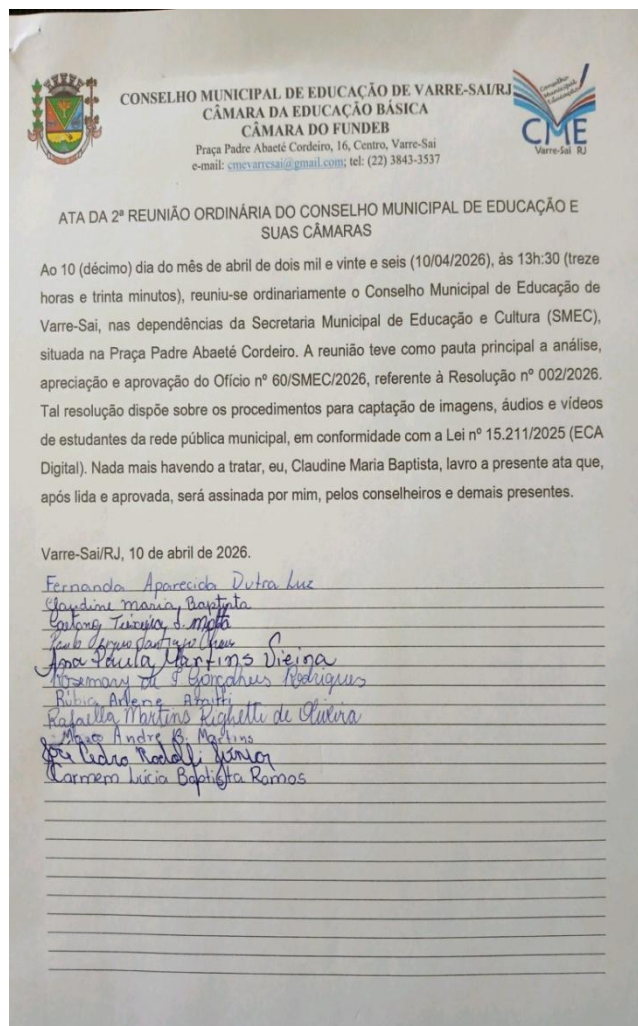 CONSELHO MUNICIPAL DE EDUCAÇÃO DE VARRE-SAI/RJ
CÂMARA DA EDUCAÇÃO BÁSICA
CÂMARA DO FUNDEB
Praça Padre Abaeté Cordeiro, 16, Centro, Varre-Sai
e-mail: cmevarresai@gmail.com; tel: (22) 3843-3537
Conselho
Municipal
Educação
CME
Varre-Sai RJ
ATA DA 2ª REUNIÃO ORDINÁRIA DO CONSELHO MUNICIPAL DE EDUCAÇÃO E
SUAS CÂMARAS
Ao 10 (décimo) dia do mês de abril de dois mil e vinte e seis (10/04/2026), às 13h:30 (treze
horas e trinta minutos), reuniu-se ordinariamente o Conselho Municipal de Educação de
Varre-Sai, nas dependências da Secretaria Municipal de Educação e Cultura (SMEC),
situada na Praça Padre Abaeté Cordeiro. A reunião teve como pauta principal a análise,
apreciação e aprovação do Ofício nº 60/SMEC/2026, referente à Resolução nº 002/2026.
Tal resolução dispõe sobre os procedimentos para captação de imagens, áudios e vídeos
de estudantes da rede pública municipal, em conformidade com a Lei nº 15.211/2025 (ECA
Digital). Nada mais havendo a tratar, eu, Claudine Maria Baptista, lavro a presente ata que,
após lida e aprovada, será assinada por mim, pelos conselheiros e demais presentes.
Varre-Sai/RJ, 10 de abril de 2026.
Fernanda Aparecida Dutra Luz
Claudine Maria Baptista
Teixeira S. Motta
Paulo
Ana Paula Martins Vieira
Rosemary de Gonçalves Rodrigues
Rúbia Arlene
Rafaella Martins Righetti de Oliveira
Marco André B. Martins
José Pedro Rodolfi Júnior
Carmem Lúcia Baptista Ramos